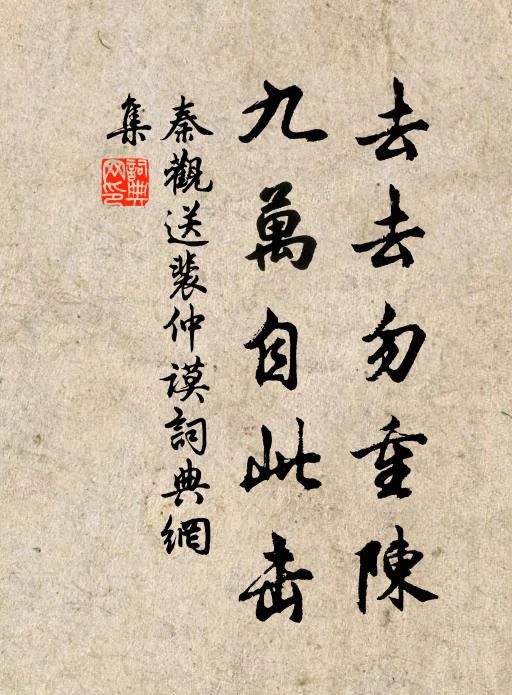 去去勿重陳
九萬自此击
秦觀送裴仲謨詞典網
集
詞典
网印